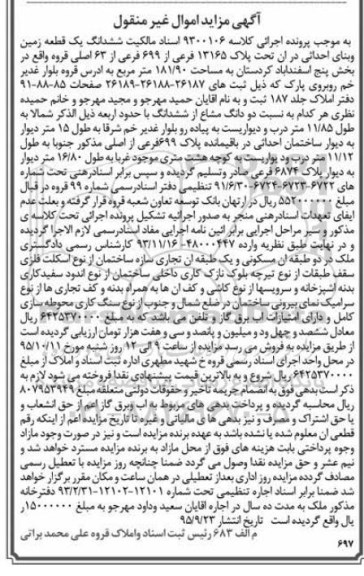 آگهی مزاید اموال غیر منقول
به موجب پرونده اجرائی کلاسه ۹۳۰۰۱۰۶ اسناد مالکیت ششدانگ یک قطعه زمین
وبنای احداثی در ان تحت پلاک ۱۳۱۶۵ فرعی از ۶۹۹ فرعی از ۶۳ اصلی قروه واقع در
بخش پنج اسفنداباد کردستان به مساحت ۱۸۱/۹۰ متر مربع به ادرس قروه بلوار غدیر
خم روبروی پارک که ذیل ثبت های ۲۶۱۸۷-۲۶۱۸۸-۲۶۱۸۹ صفحات ۸۵-۸۸-۹۱
دفتر املاک جلد ۱۸۷ ثبت و به نام اقایان حمید مهرجو و مجید مهرجو و خانم حمیده
نظری هر کدام به نسبت دو دانگ مشاع از ششدانگ با حدود اربعه ذیل الذکر شمالا به
طول ۱۱/۸۵ متر درب و دیواریست به پیاده رو بلوار غدیر خم شرقا به طول ۱۵ متر دیوار
به دیوار ساختمان احداثی در باقیمانده پلاک ۶۹۹ فرعی از اصلی مذکور جنوبا به طول
۱۱/۱۲ متر درب و دیواریست به کوچه هشت متری موجود غربا به طول ۱۶/۸۰ متر دیوار
به دیوار پلاک ۶۸۷۴ فرعی صادر وتسلیم گردیده و سپس برابر اسنادرهنی تحت شماره
های ۶۷۲۲-۶۷۲۳-۶۷۲۴-۹۱/۶/۳۰ تنظیمی دفتر اسنادرسمی شماره ۹۹ قروه در قبال
مبلغ ۵۵۲۰۰۰۰۰۰۰ ریال در ارتهان بانک توسعه تعاون شعبه قروه قرار گرفته و بعلت عدم
ایفای تعهدات اسنادرهنی منجر به صدور اجرائیه تشکیل پرونده اجرائی تحت کلاسه ی
مذکور و سیر مراحل اجرایی برابر ائین نامه اجرایی مفاد اسنادرسمی لازم الاجرا گردیده
و در نهایت طبق نظریه وارده ۴۸۰۰۰۴۴۷-۹۳/۱۱/۱۶ کارشناس رسمی دادگستری
ملک در دو طبقه ان مسکونی و یک طبقه ان تجاری سازه ساختمان از نوع اسکلت فلزی
سقف طبقات از نوع تیرچه بلوک نازک کاری داخلی ساختمان از نوع اندود سفیدکاری
بدنه آشپزخانه و سرویسها از نوع کاشی و کف ان ها به همراه بدنه و کف تجاری ها از نوع
سرامیک نمای بیرونی ساختمان در ضلع شمال و جنوب از نوع سنگ کاری محوطه سازی
کامل و دارای امتیازات اب برق گاز و تلفن می باشد که به مبلغ ۶۴۲۵۳۷۰۰۰۰ ریال
از طریق مزایده به فروش می رسد مزایده از ساعت ۹ الی ۱۲ روز شنبه مورخ ۹۵/۱۰/۱۱
در محل واحد اجرای اسناد رسمی قروه خ شهید مطهری اداره ثبت اسناد و املاک از مبلغ
۶۴۲۵۳۷۰۰۰۰ ریال شروع و به بالاترین قیمت پیشنهادی نقدا فروخته می شود لازم به
ذکر است بدهی فوق به انضمام جریمه تاخیر و حقوقات دولتی متعلقه مبلغ ۸۰۷۹۵۲۹۴۹
ریال محاسبه گردیده و پرداخت بدهی های مربوط به اب وبرق گاز اعم از حق انشعاب و
یا حق اشتراک و مصرف و نیز بدهی های مالیاتی و غیره تا تاریخ مزایده اعم از اینکه رقم
قطعی ان معلوم شده یا نشده باشد به عهده برنده مزایده است و نیز در صورت وجود مازاد
وجوه پرداختی بابت هزینه های فوق از محل مازاد به برنده مزایده مسترد خواهد شد و
نیم عشر و حق مزایده نقدا وصول می گردد ضمنا چنانچه روز مزایده با تعطیل رسمی
مصادف گردد مزایده روز اداری بعداز تعطیلی در همان ساعت و مکان مقرر برگزار خواهد
شد ضمنا برابر اسناد اجاره تنظیمی تحت شماره ۱۲۱۰۱-۱۲۱۰۲-۹۳/۲/۳۱ دفترخانه
مذکور ملک به مدت ده سال در اجاره اقایان سعید وداود مهرجو به مبلغ ۱۵۰۰۰۰۰۰
ریال واقع گردیده است تاریخ انتشار ۹۵/۹/۲۳
م الف ۶۸۳ رئیس ثبت اسناد واملاک قروه علی محمد براتی
۶۹۷